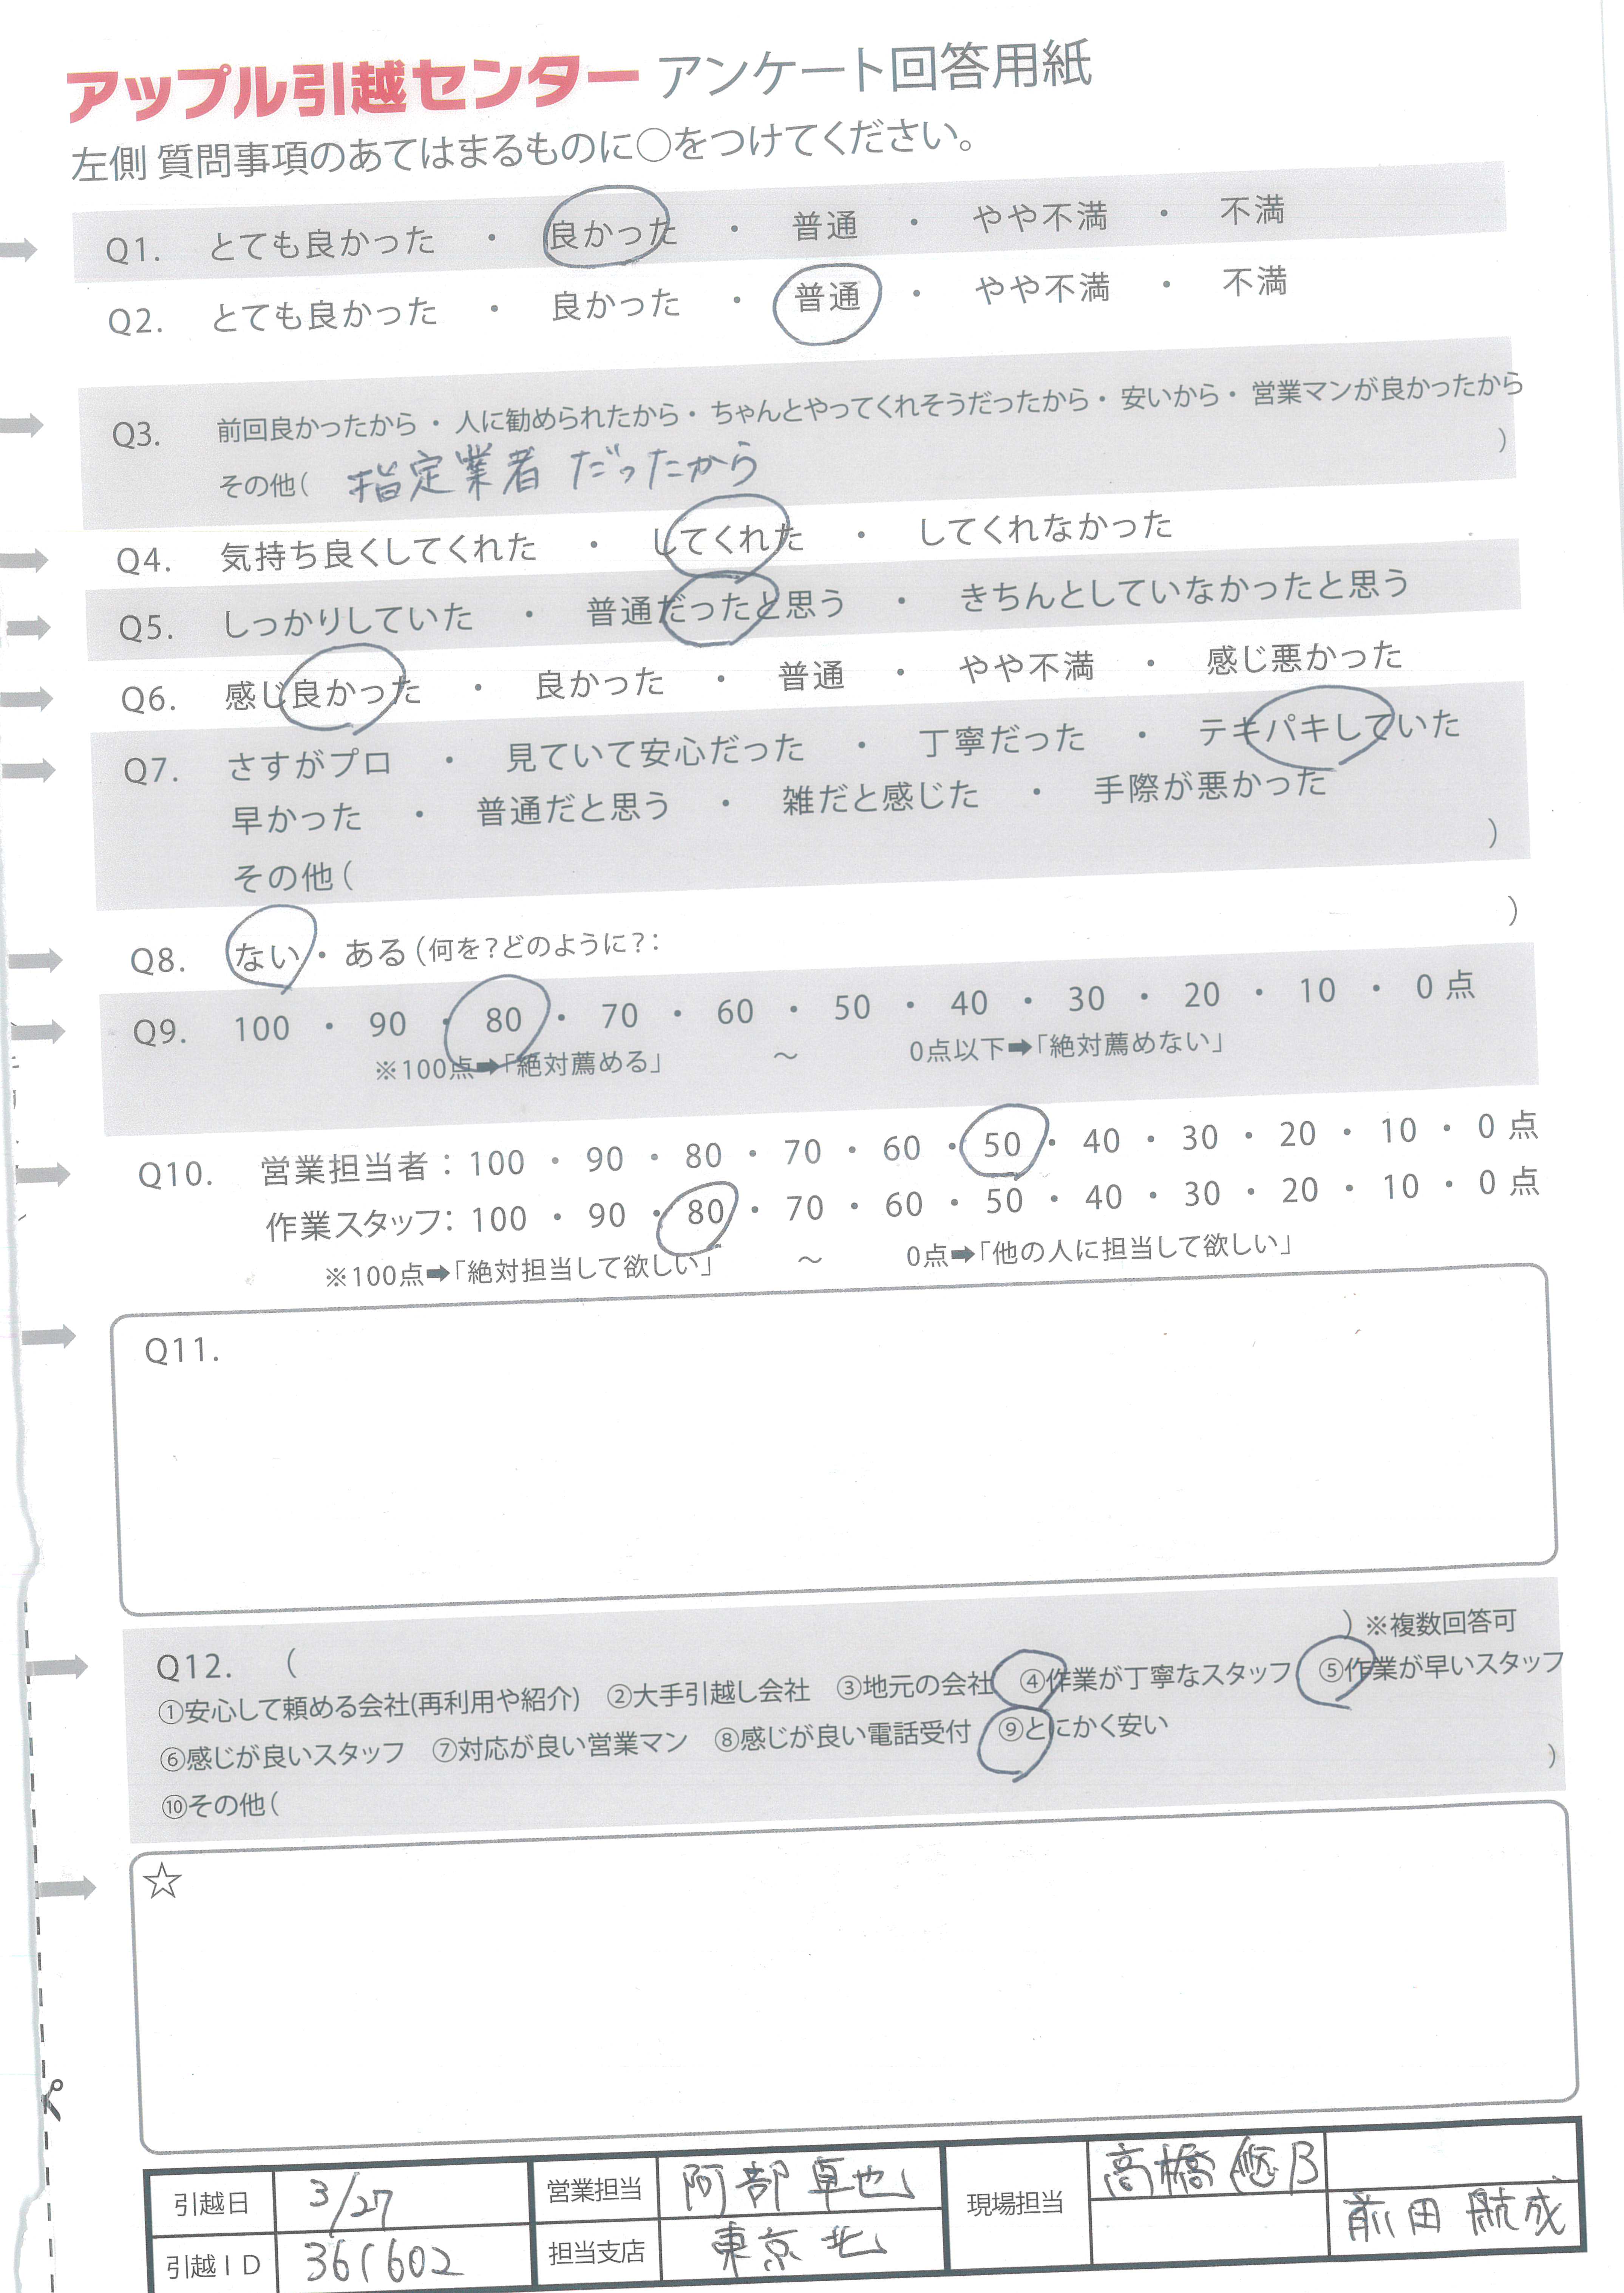 アップル引越センター アンケート回答用紙
左側 質問事項のあてはまるものに○をつけてください。
Q1. とても良かった ・ 良かった ・ 普通 ・ やや不満 ・ 不満
Q2. とても良かった ・ 良かった ・ 普通 ・ やや不満 ・ 不満
Q3. 前回良かったから ・ 人に勧められたから ・ ちゃんとやってくれそうだったから ・ 安いから ・ 営業マンが良かったから
その他( 指定業者 だったから )
Q4. 気持ち良くしてくれた ・ してくれた ・ してくれなかった
Q5. しっかりしていた ・ 普通だったと思う ・ きちんとしていなかったと思う
Q6. 感じ良かった ・ 良かった ・ 普通 ・ やや不満 ・ 感じ悪かった
Q7. さすがプロ ・ 見ていて安心だった ・ 丁寧だった ・ テキパキしていた
早かった ・ 普通だと思う ・ 雑だと感じた ・ 手際が悪かった
その他( )
Q8. ない ・ ある (何を?どのように?: )
Q9. 100 ・ 90 ・ 80 ・ 70 ・ 60 ・ 50 ・ 40 ・ 30 ・ 20 ・ 10 ・ 0 点
※100点➡「絶対薦める」 ～ 0点以下➡「絶対薦めない」
Q10. 営業担当者:100 ・ 90 ・ 80 ・ 70 ・ 60 ・ 50 ・ 40 ・ 30 ・ 20 ・ 10 ・ 0 点
作業スタッフ:100 ・ 90 ・ 80 ・ 70 ・ 60 ・ 50 ・ 40 ・ 30 ・ 20 ・ 10 ・ 0 点
※100点➡「絶対担当して欲しい」 ～ 0点➡「他の人に担当して欲しい」
Q11.
Q12. ( ) ※複数回答可
①安心して頼める会社(再利用や紹介) ②大手引越し会社 ③地元の会社 ④作業が丁寧なスタッフ ⑤作業が早いスタッフ
⑥感じが良いスタッフ ⑦対応が良い営業マン ⑧感じが良い電話受付 ⑨とにかく安い
⑩その他( )
☆
引越日 3/27 営業担当 阿部 卓也 現場担当 高橋
引越ID 361602 担当支店 東京北 前田 航成